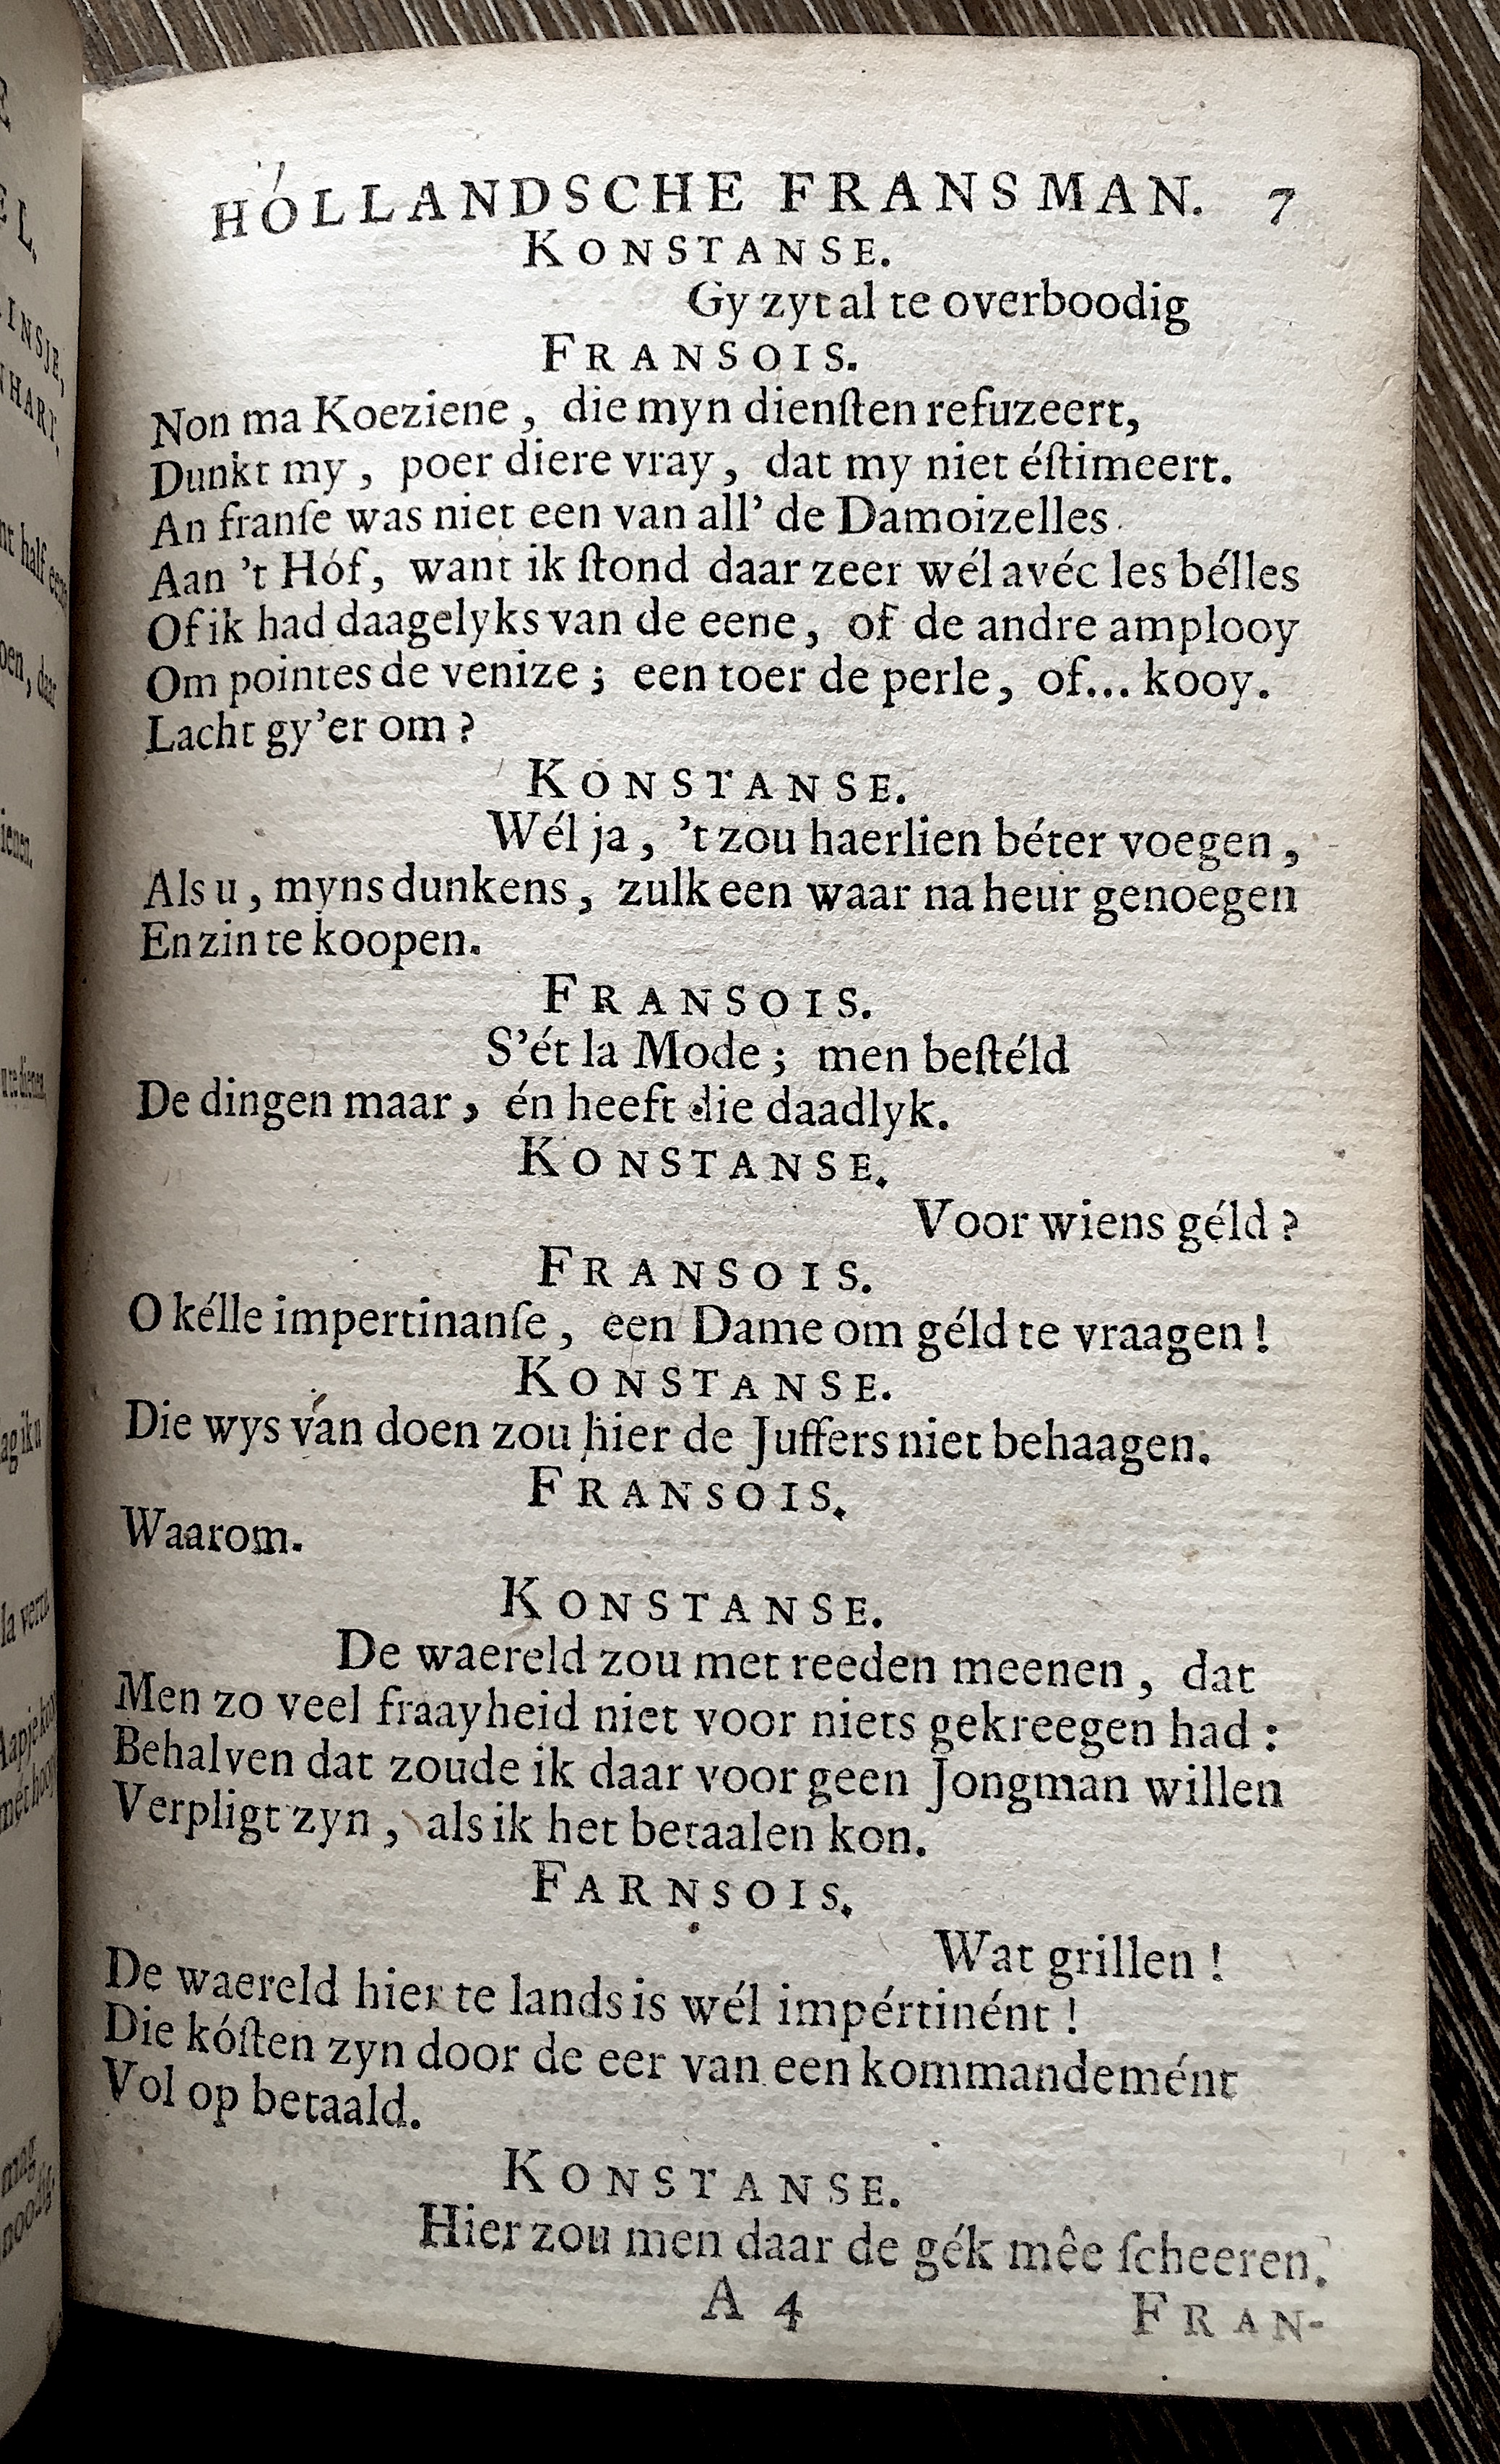 HÓLLANDSCHE FRANSMAN. 7
KONSTANSE.
Gy zyt al te overboodig
FRANSOIS.
Non ma Koeziene, die myn dienſten refuzeert,
Dunkt my, poer diere vray, dat my niet éſtimeert.
An franſe was niet een van all' de Damoizelles.
Aan 't Hóf, want ik ſtond daar zeer wél avéc les bélles
Of ik had daagelyks van de eene, of de andre amplooy
Om pointes de venize; een toer de perle, of... kooy.
Lacht gy'er om?
KONSTANSE.
Wél ja, 't zou haerlien béter voegen,
Als u, myns dunkens, zulk een waar na heur genoegen
En zin te koopen.
FRANSOIS.
S'ét la Mode; men beſtéld
De dingen maar, én heeft die daadlyk.
KONSTANSE.
Voor wiens géld?
FRANSOIS.
O kélle impertinanſe, een Dame om géld te vraagen!
KONSTANSE.
Die wys van doen zou hier de Juffers niet behaagen.
FRANSOIS.
Waarom.
KONSTANSE.
De waereld zou met reeden meenen, dat
Men zo veel fraayheid niet voor niets gekreegen had:
Behalven dat zoude ik daar voor geen Jongman willen
Verpligt zyn, als ik het betaalen kon.
FARNSOIS.
Wat grillen!
De waereld hier te lands is wél impértinént!
Die kóſten zyn door de eer van een kommandemént
Vol op betaald.
KONSTANSE.
Hier zou men daar de gék mêe ſcheeren.
A 4 FRAN-